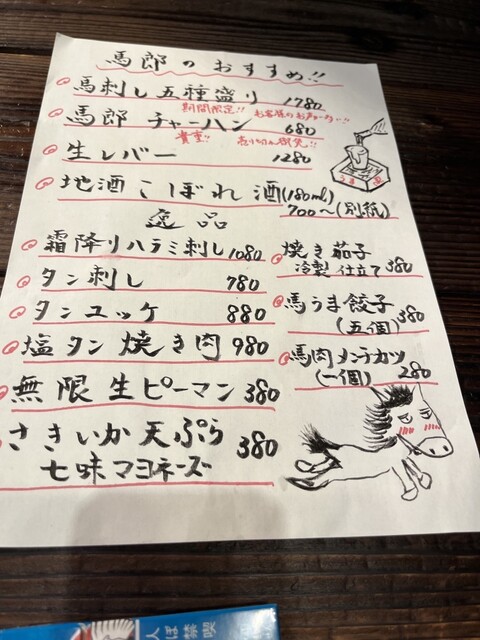 馬郎のおすすめ!!
馬刺し五種盛り 1780
期間限定!!
馬郎 チャーハン 680
貴重!!
生レバー 1280
地酒こぼれ酒(180ml)
700〜(別紙)
逸品
霜降りハラミ刺し 1080
タン刺し 780
タンユッケ 880
塩タン焼き肉 980
無限生ピーマン 380
さきいか天ぷら
七味マヨネーズ 380
焼き茄子
冷製 仕立て 380
馬うま餃子
(五個) 380
馬肉メンチカツ
(一個) 280
うま
人
ほ
禁
喫